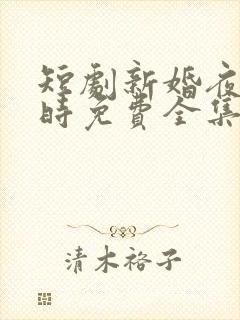 短劇新婚夜
時免費全集
清木裕子